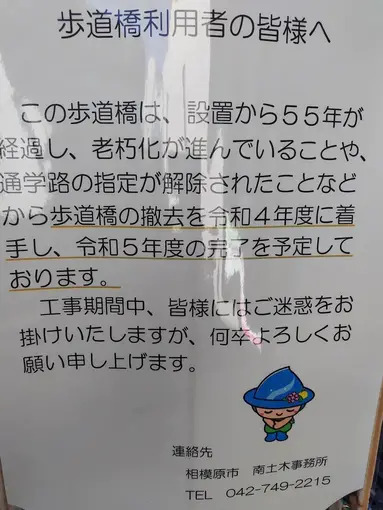 歩道橋利用者の皆様へ
この歩道橋は、設置から55年が
経過し、老朽化が進んでいることや、
通学路の指定が解除されたことなど
から歩道橋の撤去を令和4年度に着
手し、令和5年度の完了を予定して
おります。
工事期間中、皆様にはご迷惑をお
掛けいたしますが、何卒よろしくお
願い申し上げます。
連絡先
相模原市 南土木事務所
TEL 042-749-2215